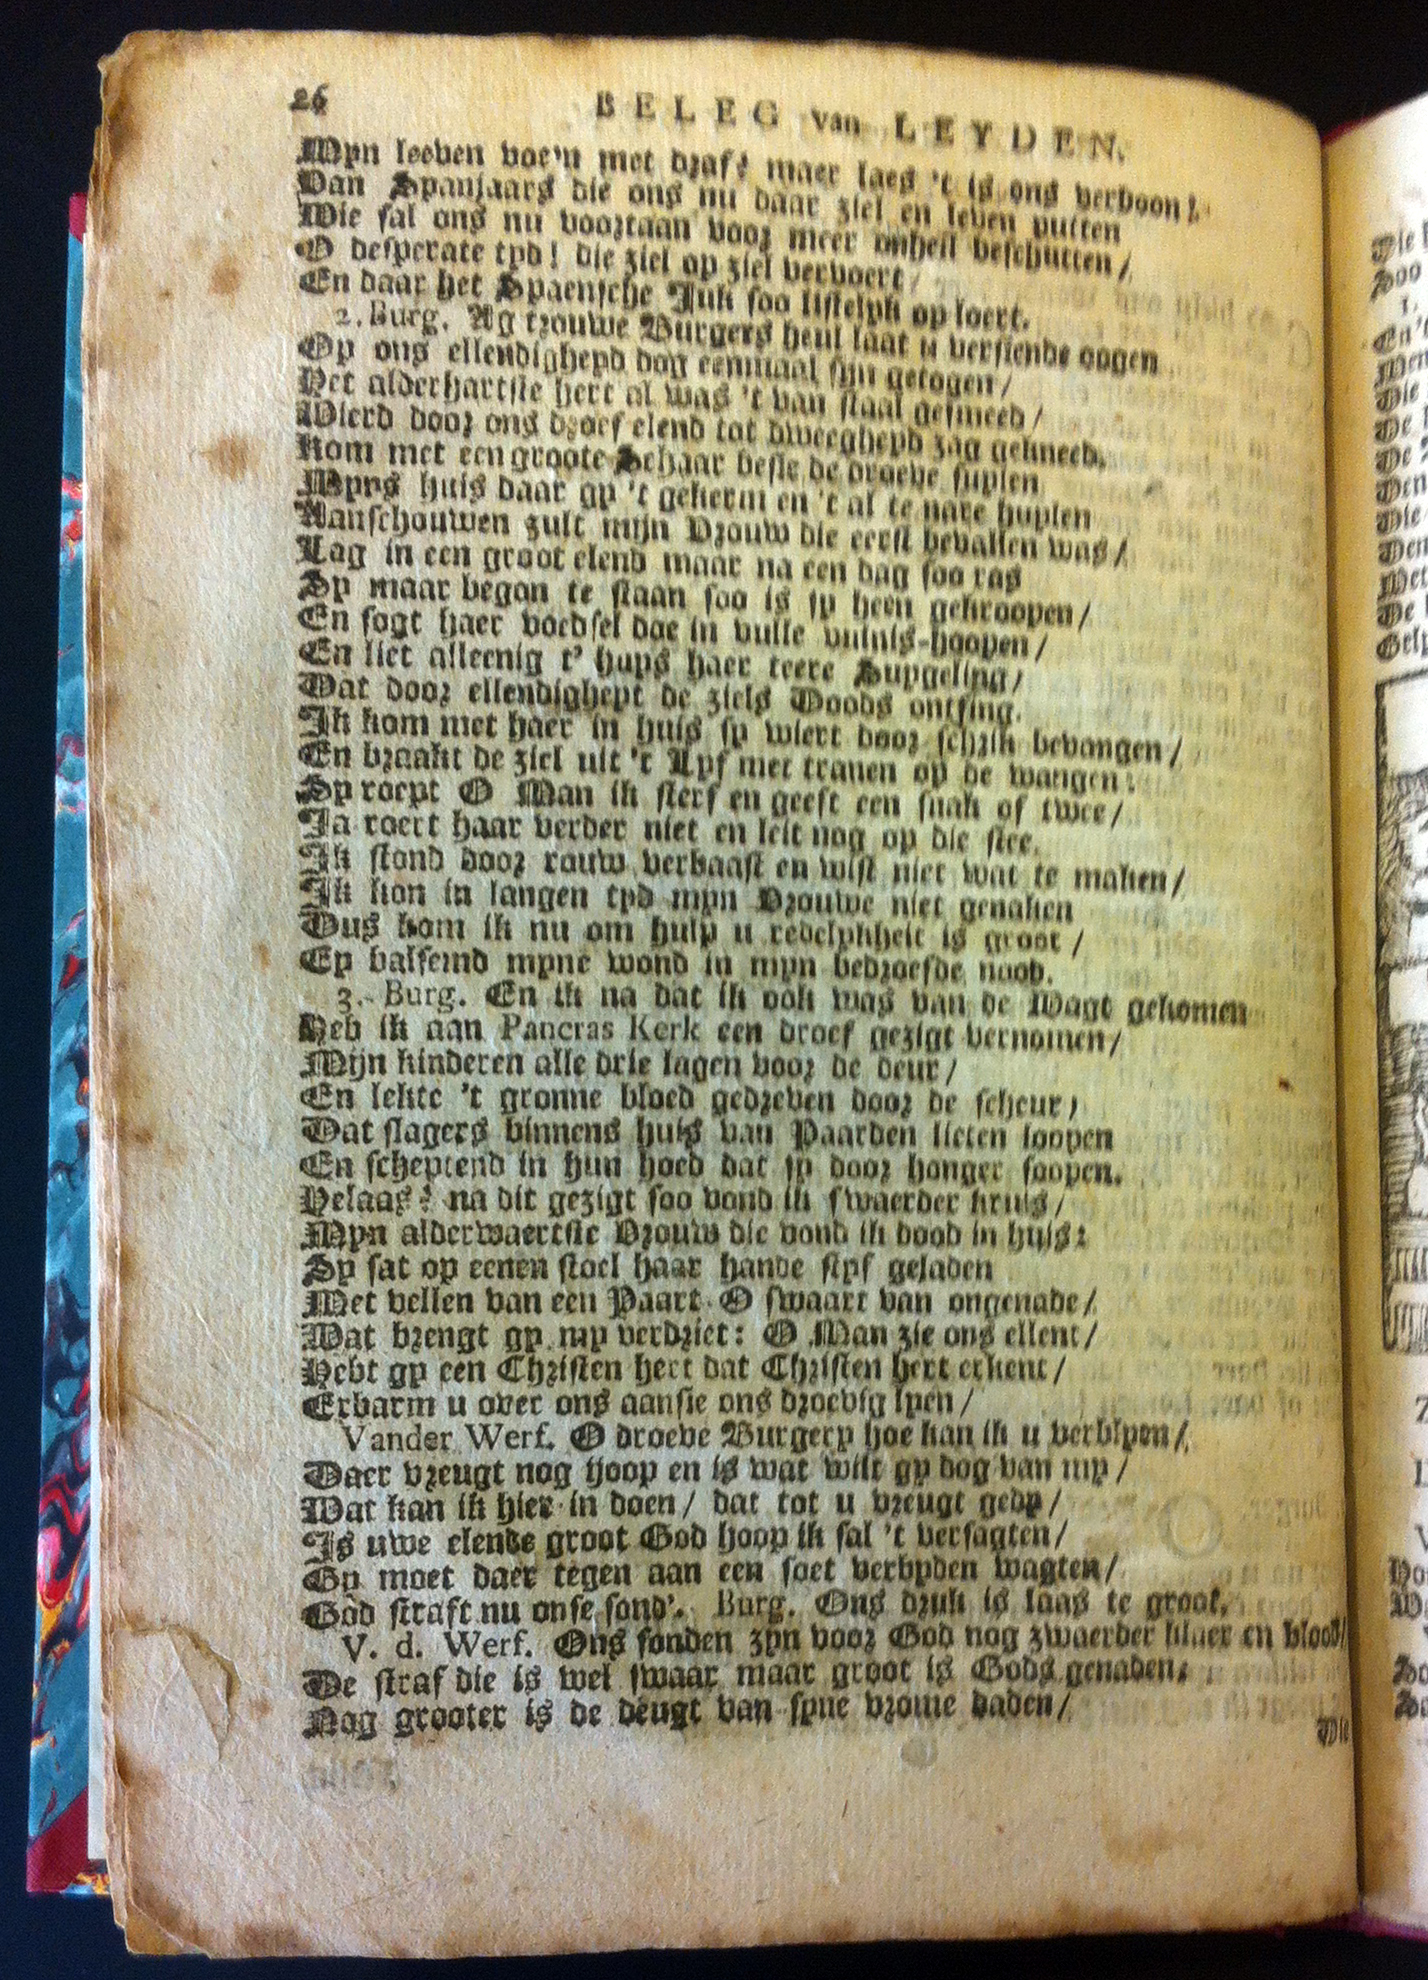 26 BELEG van LEYDEN.
Myn leeven voe'n met draf? maer laes 't is ons verboon!
Van Spanjaars die ons nu daar ziel en leven putten
Wie sal ons nu voortaan voor meer onheil beschutten/
O desperate tyd! die ziel op ziel vervoert/
En daar het Spaensche Juk soo listelyk op loert.
2. Burg. Ag trouwe Burgers heul laat u versiende oogen
Op ons ellendigheyd dog eenmaal sijn getogen/
Het alderhartste hert al was 't van staal gesmeed/
Wierd door ons droef elend tot dweegheyd zag gekneed.
Kom met een groote Schaar besie de droeve suylen
Myns huis daar gy 't gekerm en 't al te nare huylen
Aanschouwen zult mijn Vrouw die eerst bevallen was/
Lag in een groot elend maar na een dag soo ras
Sy maar began te staan soo is sy heen gekroopen/
En sogt haer voedsel doe in vuile vuilnis-hoopen/
En liet alleenig t' huys haer teere Suygeling/
Dat door ellendigheyt de ziels Doods ontfing.
Ik kom met haer in huis sy wiert door schrik bevangen/
En braakt de ziel uit 't Lyf met tranen op de wangen:
Sy roept O Man ik sterf en geeft een snak of twee/
Ja roert haar verder niet en leit nog op die stee.
Ik stond door rouw verbaast en wist niet wat te maken/
Ik kon in langen tyd myn Vrouwe niet genaken
Dus kom ik nu om hulp u redelykheit is groot/
Ey balsemd myne wond in myn bedroefde nood.
3. Burg. En ik na dat ik ook was van de Wagt gekomen
Heb ik aan Pancras Kerk een droef gezigt vernomen/
Mijn kinderen alle drie lagen voor de deur/
En lekte 't gronne bloed gedreven door de scheur/
Dat slagers binnens huis van Paarden lieten loopen
En scheptend in hun hoed dat sy door honger soopen.
Helaas! na dit gezigt soo vond ik swaerder kruis/
Myn alderwaertste Vrouw die vond ik dood in huis:
Sy sat op eenen stoel haar hande styf geladen
Met vellen van een Paart. O swaart van ongenade/
Wat brengt gy my verdriet: O Man zie ons ellent/
Hebt gy een Christen hert dat Christen hert erkent/
Erbarm u over ons aansie ons droevig lyen/
Vander Werf. O droeve Burgery hoe kan ik u verblyen/
Daer vreugt nog hoop en is wat wilt gy dog van my/
Wat kan ik hier in doen/ dat tot u vreugt gedy/
Is uwe elende groot God hoop ik sal 't versagten/
Gy moet daer tegen aan een soet verbyden wagten/
God straft nu onse sond'. Burg. Ons druk is laas te groot.
V. d. Werf. Ons sonden zyn voor God nog zwaerder blaer en blood/
De straf die is wel swaar maar groot is Gods genaden:
Nog grooter is de deugt van syne vrome daden/
Wie